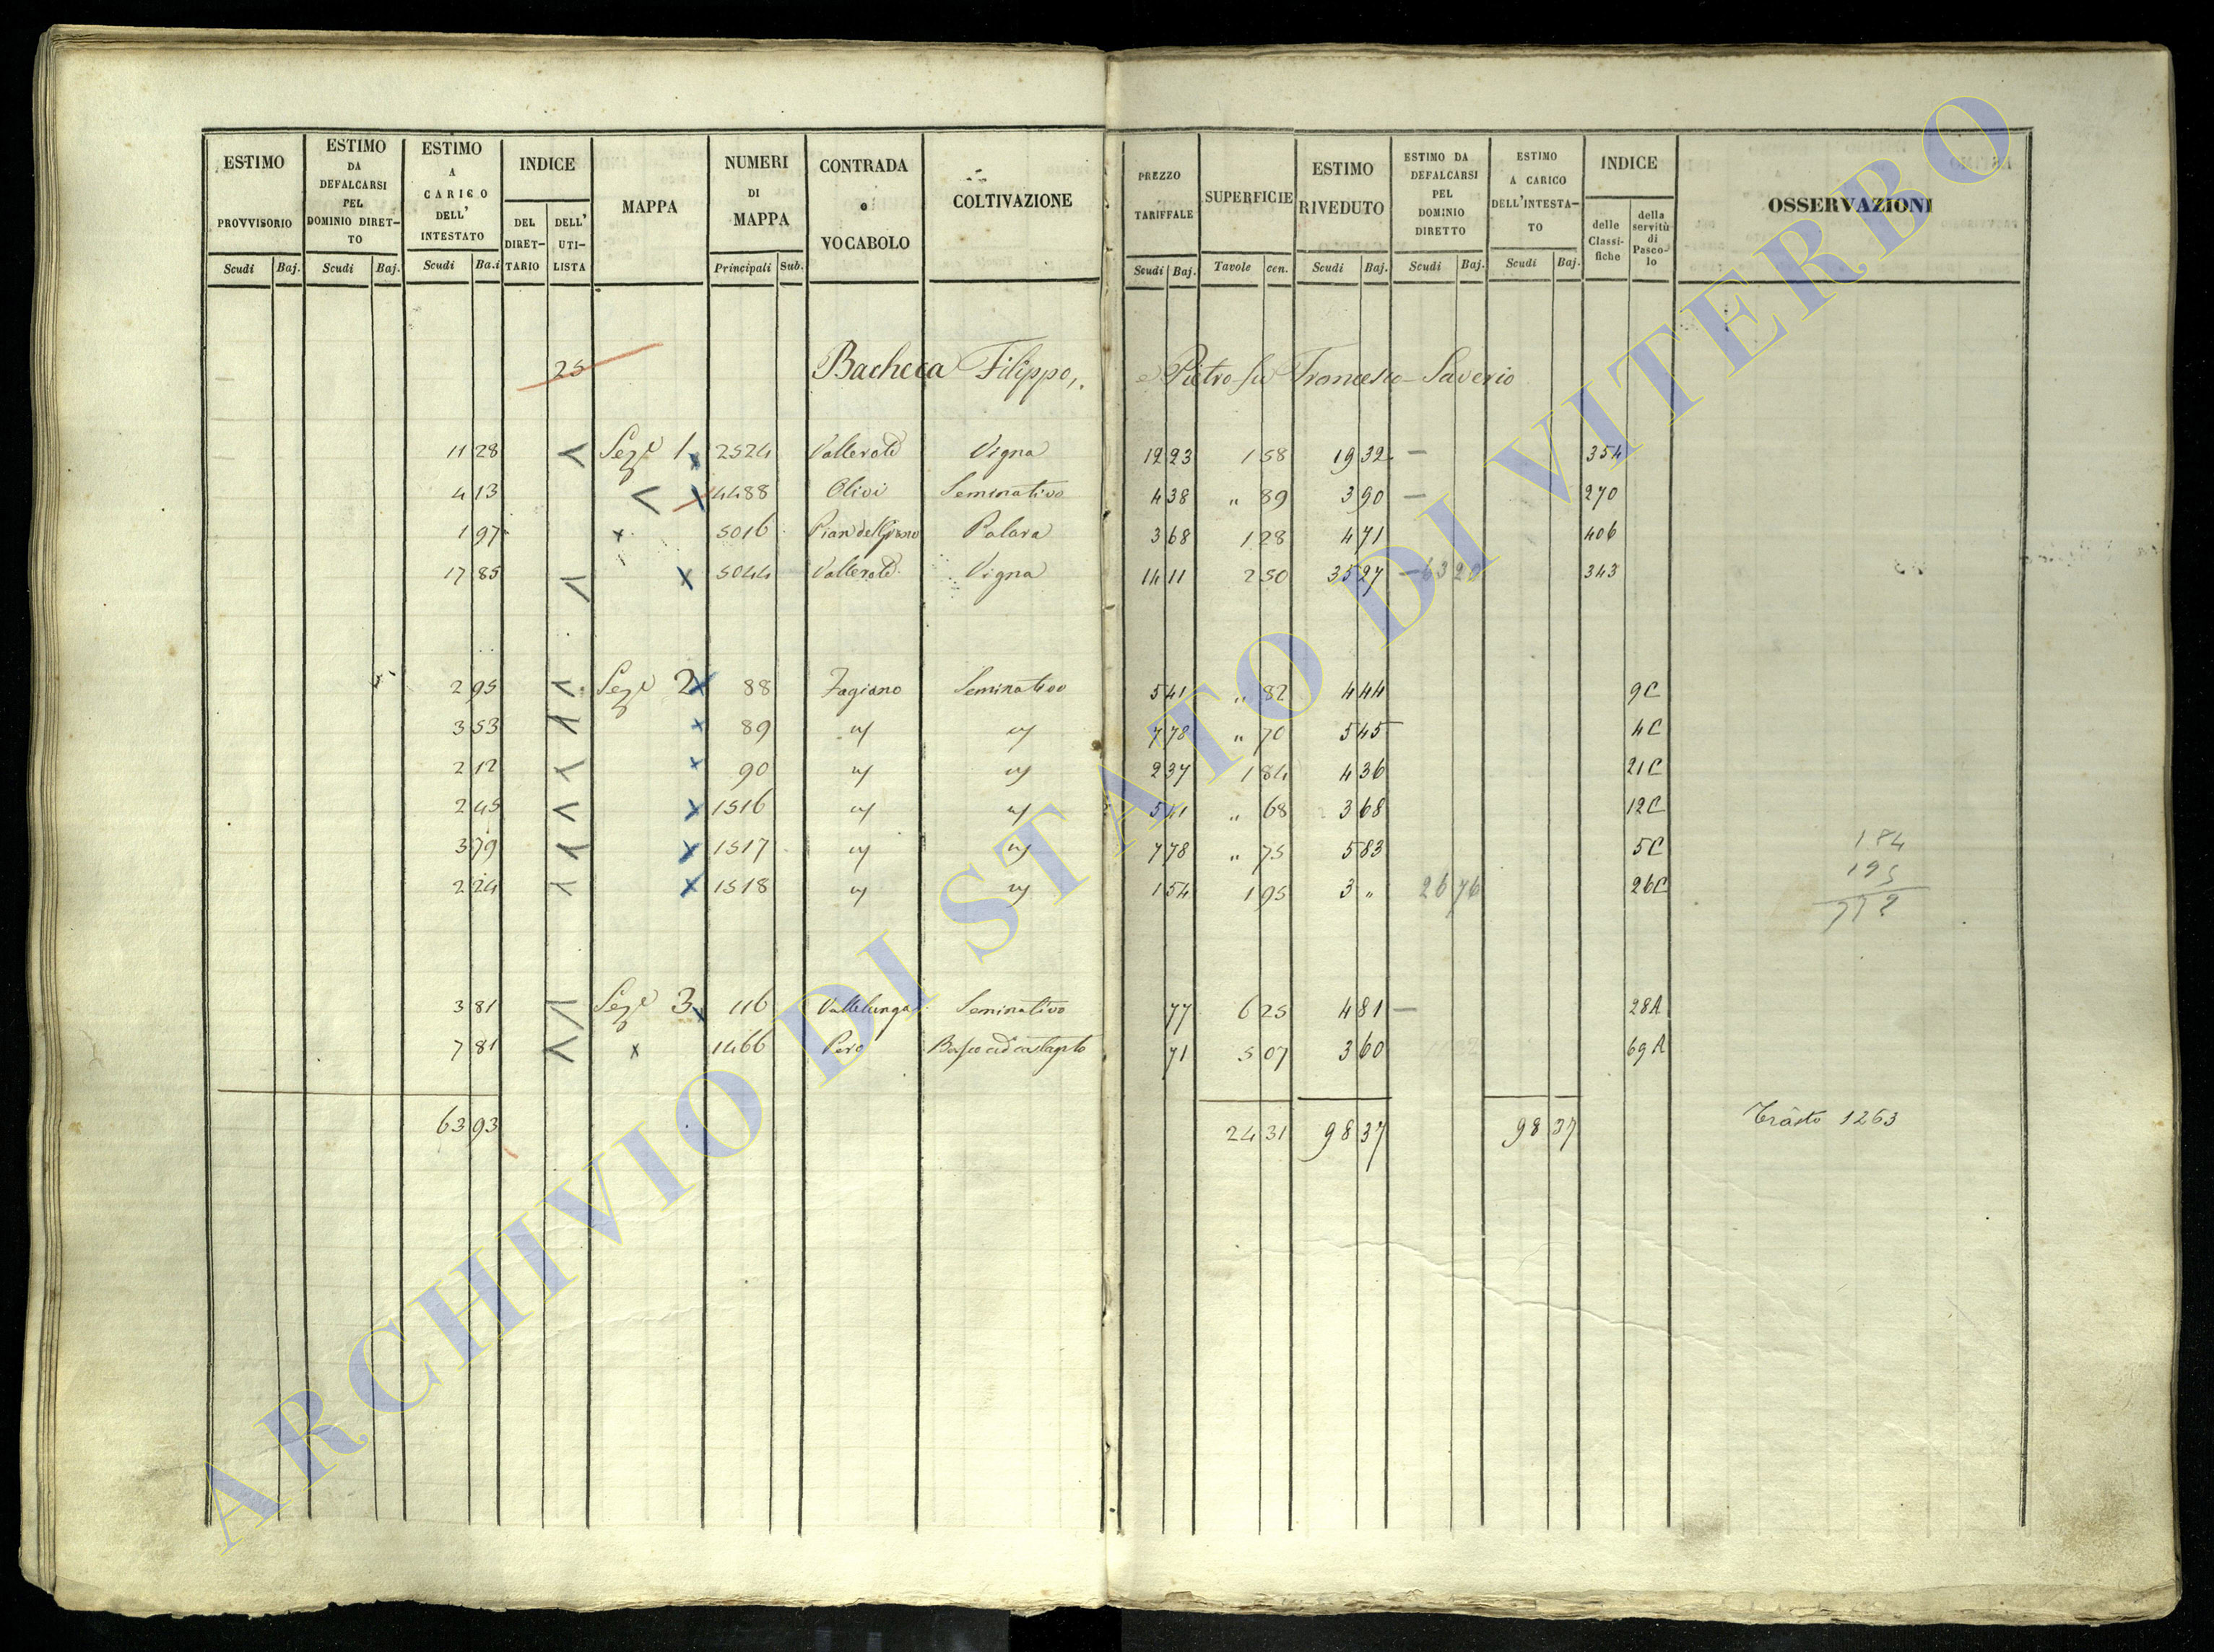 ESTIMO PROVVISORIO Scudi Baj.
ESTIMO DA DEFALCARSI PEL DOMINIO DIRETTO Scudi Baj.
ESTIMO A CARICO DELL' INTESTATO Scudi Ba.i
INDICE DEL DIRETTARIO DELL' UTILISTA
MAPPA
NUMERI DI MAPPA Principali Sub.
CONTRADA o VOCABOLO
COLTIVAZIONE
PREZZO TARIFFALE Scudi Baj.
SUPERFICIE Tavole cen.
ESTIMO RIVEDUTO Scudi Baj.
ESTIMO DA DEFALCARSI PEL DOMINIO DIRETTO Scudi Baj.
ESTIMO A CARICO DELL'INTESTATO Scudi Baj.
INDICE delle Classifiche della servitù di Pascolo
OSSERVAZIONI
25 Bacheca Filippo, e Pietro fu Francesco Saverio
11 28 Sez.e 1 2524 Vigna 12 23 1 58 19 32 — 354
4 13 4488 Olivi Seminativo 4 38 " 89 3 90 — 270
1 97 x 5016 3 68 1 28 4 71 406
17 85 x 5044 Vigna 14 11 2 50 35 27 — 63 20 343
2 95 Sez.e 2 x 88 Fagiano Seminativo 5 41 " 82 4 44 9C
3 53 x 89 7 78 " 70 5 45 4C
2 12 x 90 2 37 1 84 4 36 21C
2 45 x 1516 5 41 " 68 3 68 12C
3 79 x 1517 7 78 " 75 5 83 5C
2 24 x 1518 1 54 1 95 3 " 26 76 26C
184
195
3 81 Sez.e 3 x 116 Vallelunga Seminativo 77 6 25 4 81 — 28A
7 81 x 1466 Pero 71 5 07 3 60 69A
63 93 24 31 98 37 98 37 1263
ARCHIVIO DI STATO DI VITERBO